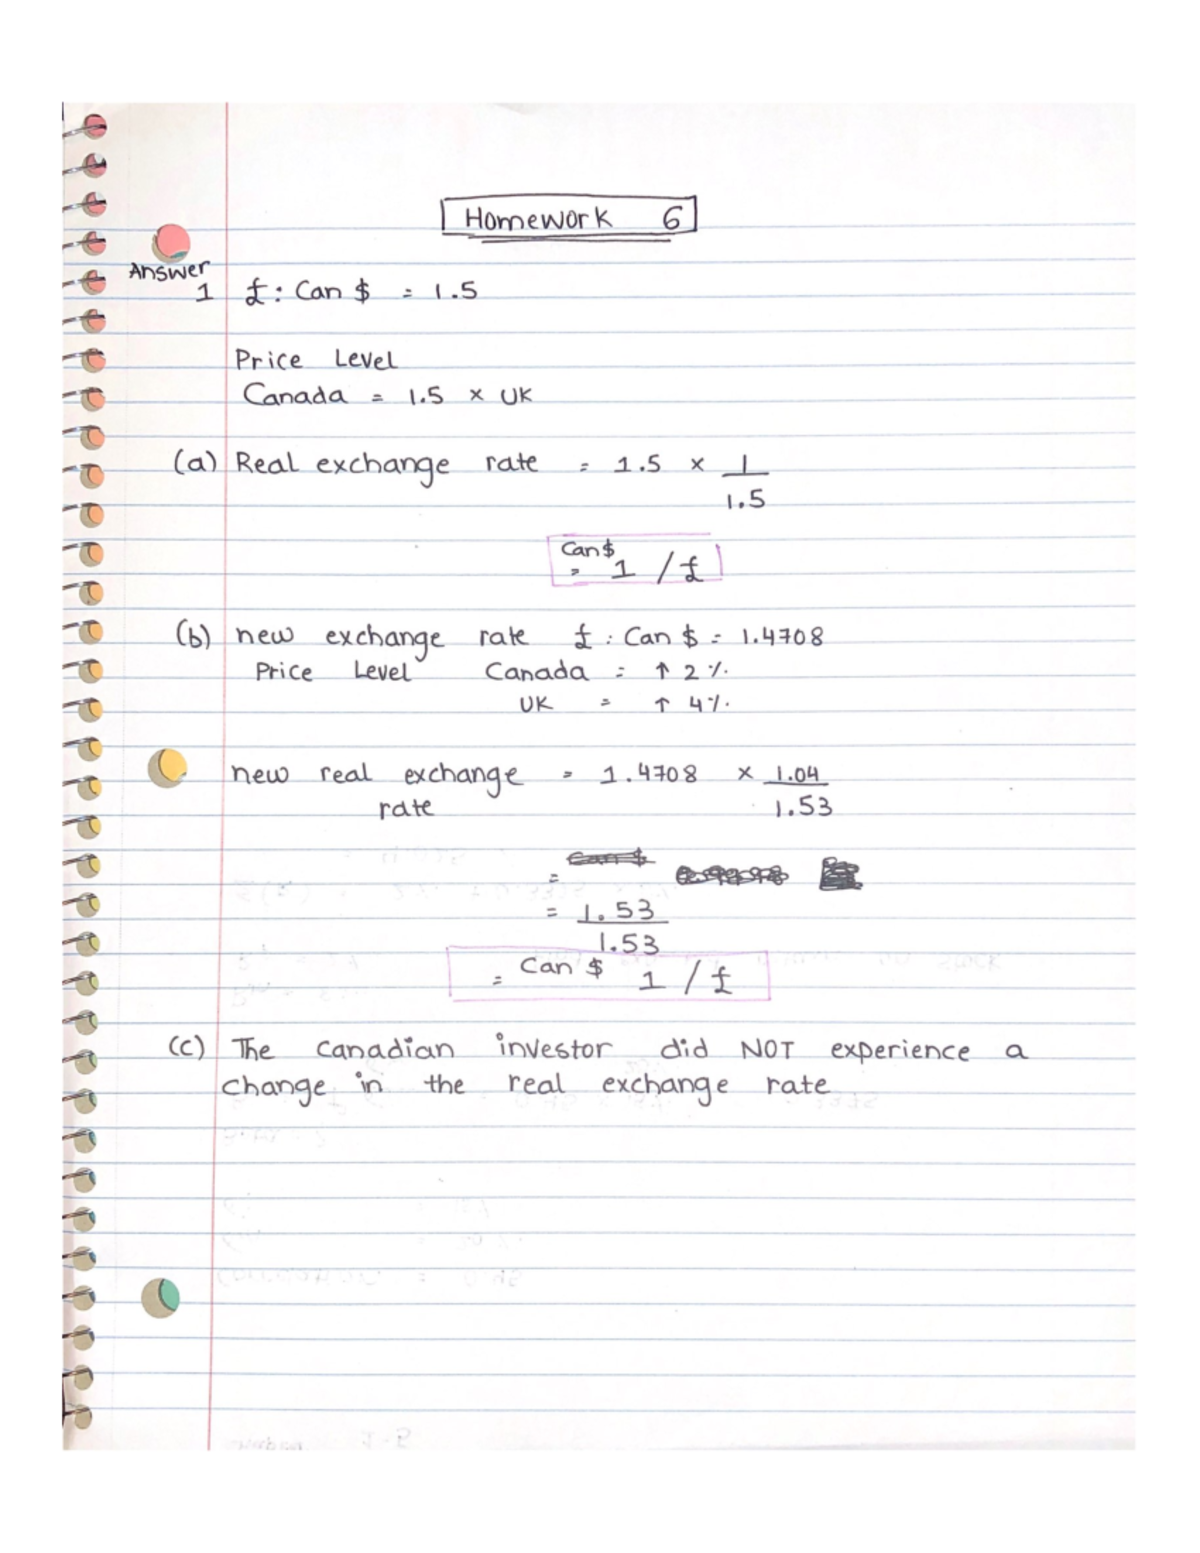 Homework 6
Answer
1 £ : Can $ = 1.5
Price Level
Canada = 1.5 × UK
(a) Real exchange rate = 1.5 × 1
1.5
Can $
= 1 / £
(b) new exchange rate £ : Can $ = 1.4708
Price Level Canada = ↑ 2 %.
UK = ↑ 4%.
new real exchange = 1.4708 × 1.04
rate 1.53
=
= 1.53
1.53
= Can $ 1 / £
(c) The Canadian investor did NOT experience a
change in the real exchange rate